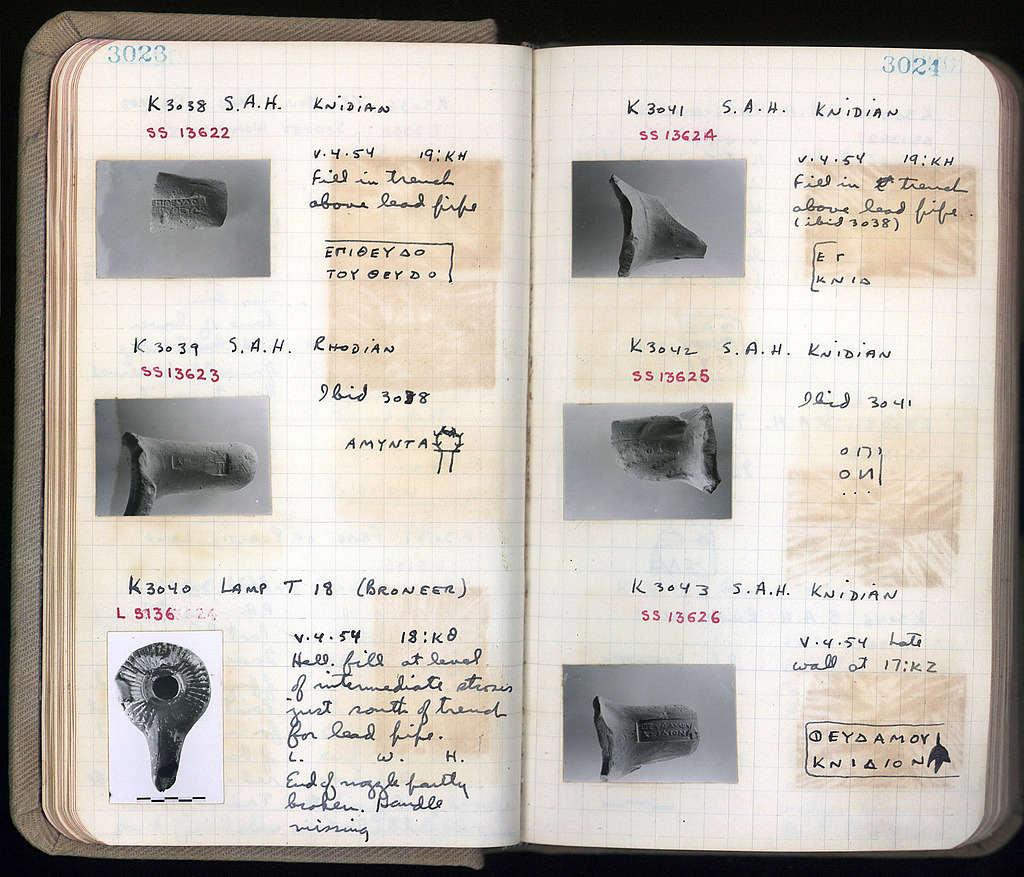 3023
K 3038 S.A.H. KNIDIAN
SS 13622
V.4.54 19:KH
Fill in trench
above lead pipe
ΕΠΙΘΕΥΔΟ
ΤΟΥΘΕΥΔΟ
K 3039 S.A.H. RHODIAN
SS 13623
Ibid 3038
ΑΜΥΝΤΑ
K3040 LAMP T 18 (BRONEER)
L
V.4.54 18:KΘ
Hell. fill at level
of intermediate stosis
just south of trench
for lead pipe.
L. W. H.
End of nozzle partly
broken. Handle
missing
3024
K 3041 S.A.H. KNIDIAN
SS 13624
V.4.54 19:KH
Fill in trench
above lead pipe.
(ibid 3038)
ΕΓ
ΚΝΙΔ
K3042 S.A.H. KNIDIAN
SS 13625
Ibid 3041
...
K 3043 S.A.H. KNIDIAN
SS 13626
V.4.54 Late
wall at 17:KZ
ΘΕΥΔΑΜΟΥ
ΚΝΙΔΙΟΝ